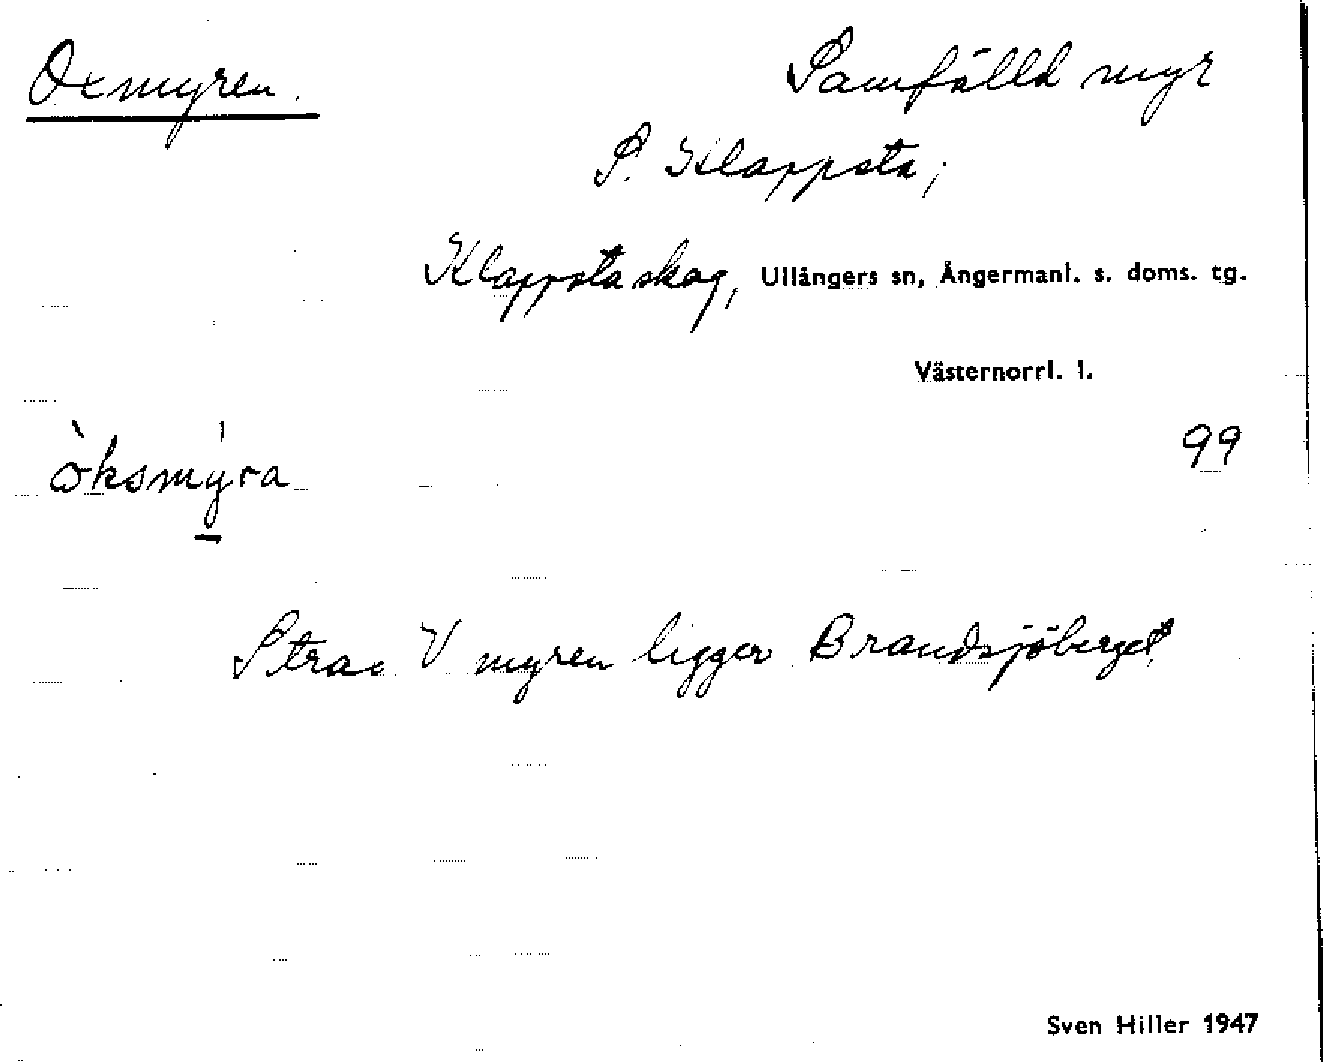 Oxmyren.
Samfälld myr
S. Klappsta;
Klappsta skog, Ullångers sn, Ångermanl. s. doms. tg.
Västernorrl. l.
99
òksmy̍ra
Strax V myren ligger Brandsjöberget
Sven Hiller 1947